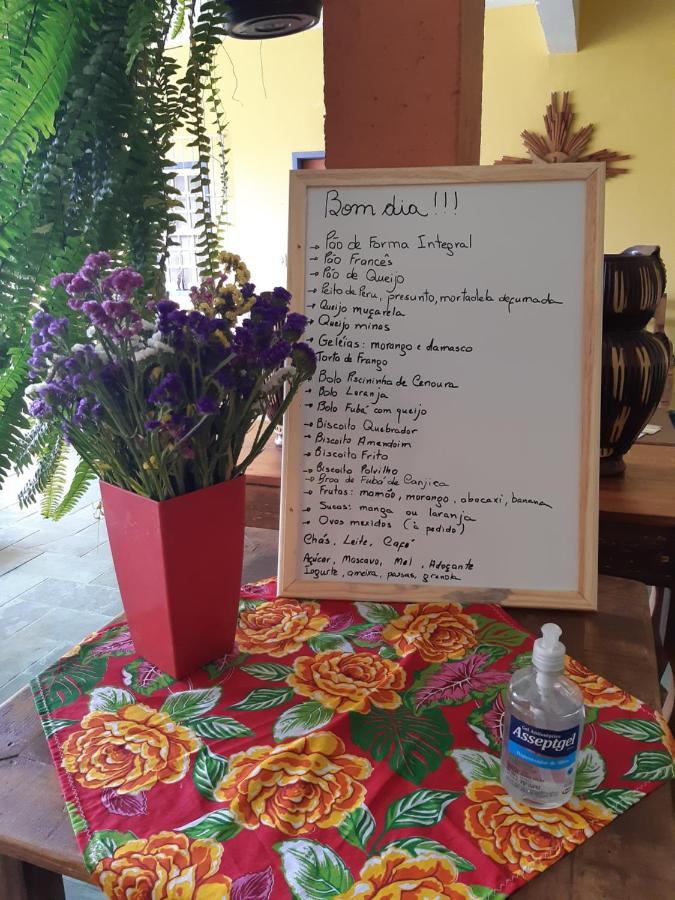 Bom dia!!!
→ Pão de Forma Integral
→ Pão Francês
→ Pão de Queijo
→ Peito de Peru, presunto, mortadela defumada
→ Queijo muçarela
→ Queijo minas
→ Geleias: morango e damasco
→ Torta de Frango
→ Bolo Piscininha de Cenoura
→ Bolo Laranja
→ Bolo Fubá com queijo
→ Biscoito Quebrador
→ Biscoito Amendoim
→ Biscoito Frito
→ Biscoito Polvilho
→ Broa de Fubá de Canjica
→ Frutas: mamão, morango, abacaxi, banana
→ Sucos: manga ou laranja
→ Ovos mexidos (à pedido)
Chás, Leite, Café
Açúcar, Mascavo, Mel, Adoçante
Iogurte, ameixa, passas, granola
Gel Antisséptico
ASSEPTGEL
Higienizador de Mãos